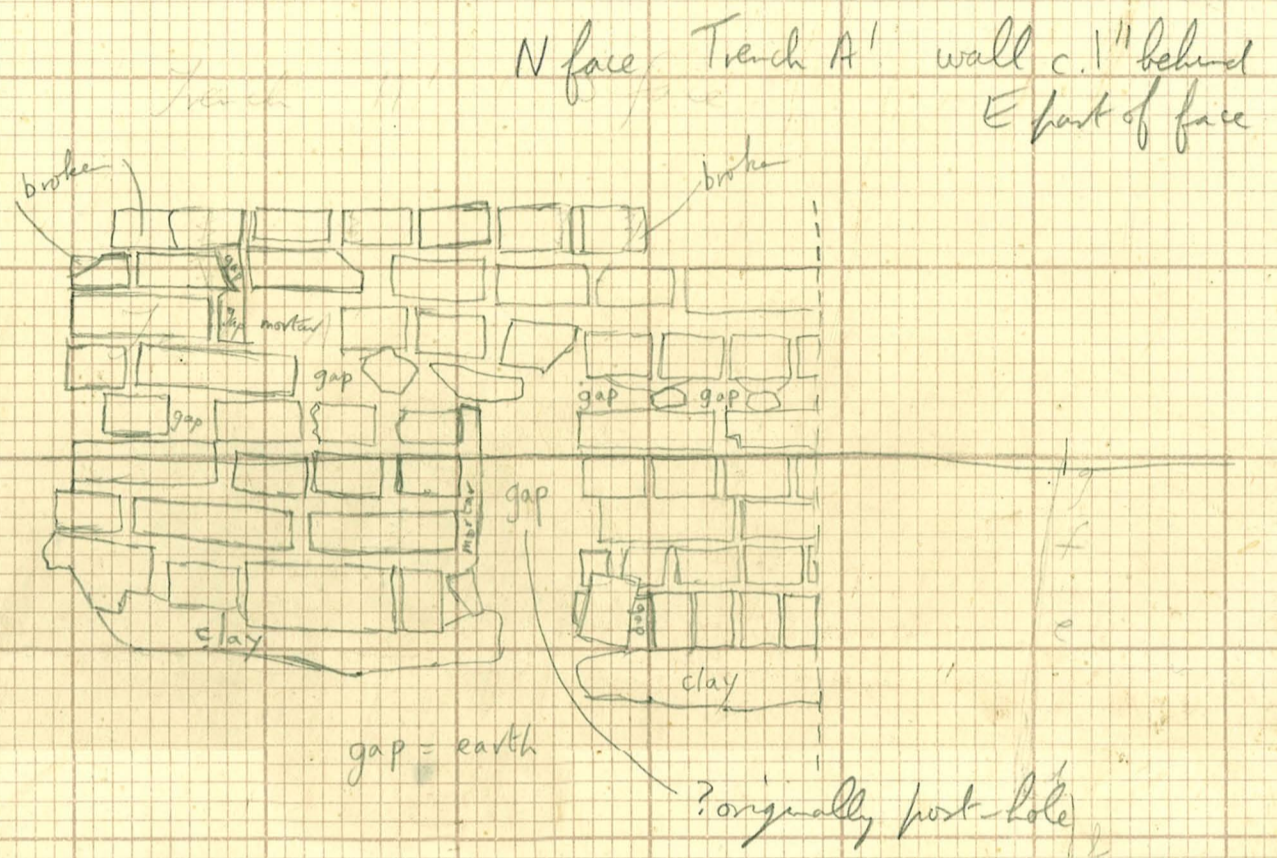 N face Trench A' wall c. 1" behind
E part of face
Trench
broken
broken
gap
gap mortar
gap
gap gap
gap
gap
mortar
gap
clay
clay
gap = earth
? originally post-hole